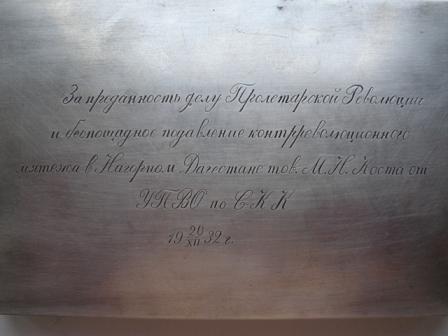 За преданность делу Пролетарской Революции
и беспощадное подавление контрреволюционного
мятежа в Нагорном Дагестане тов. М. Н. Коста от
УПВО по С К К
19 20/XII 32 г.